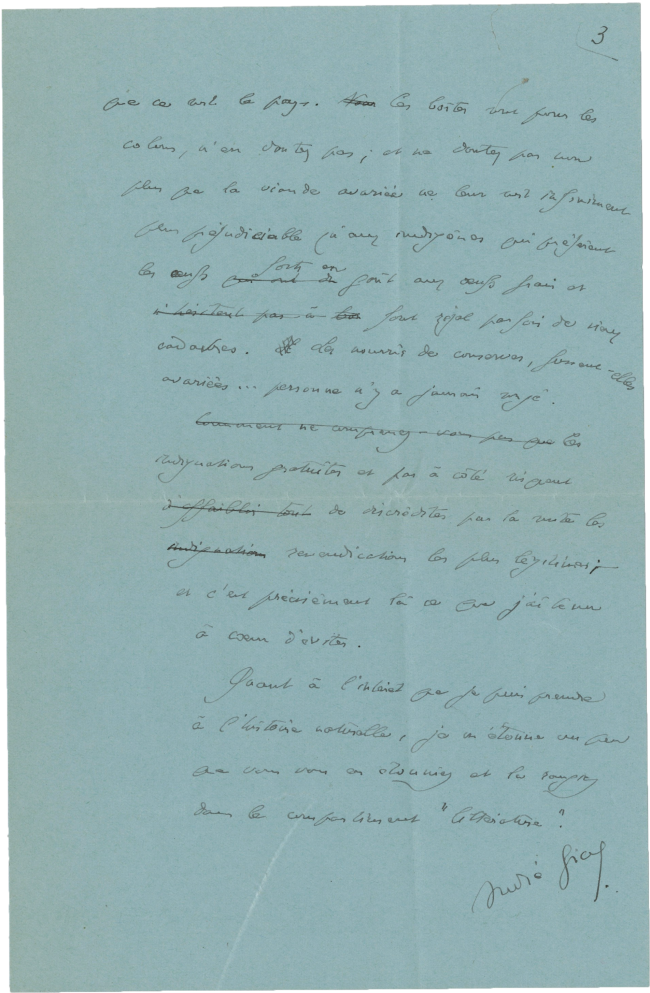 3
que ce soit le pays. Nous les boîtes sont pour les
colons, n'en doutez pas ; et ne doutez pas non
plus que la viande avariée ne leur soit infiniment
plus préjudiciable qu'aux indigènes qui préfèrent
forts en
les œufs qui ont du goût aux œufs frais et
n'hésitent pas à font régal parfois de vieux
cadavres. des nourris de conserves, fussent-elles
avariées... personne n'y a jamais songé.
Comment ne comprenez-vous pas que les
indignations gratuites et par à côté risquent
d'affaiblir tout de discréditer par la suite les
indignations revendications les plus légitimes ;
et c'est précisément là ce que j'ai tenu
à cœur d'éviter.
Quant à l'intérêt que je puis prendre
à l'histoire naturelle, je m'étonne un peu
que vous vous en étonniez et la rangiez
dans le compartiment "littérature".
André Gide.